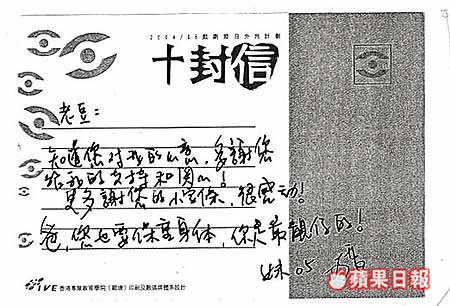 2004/05戲劇節目外判計劃
十封信
老豆：
知道您對我的心意，多謝您
給我的支持和關心！
更多謝您的小字條，很感動！
爸，您也要保重身體，你是最靚仔的！
05
IVE 香港專業教育學院（觀塘）印刷及數碼媒體系設計
蘋果日報